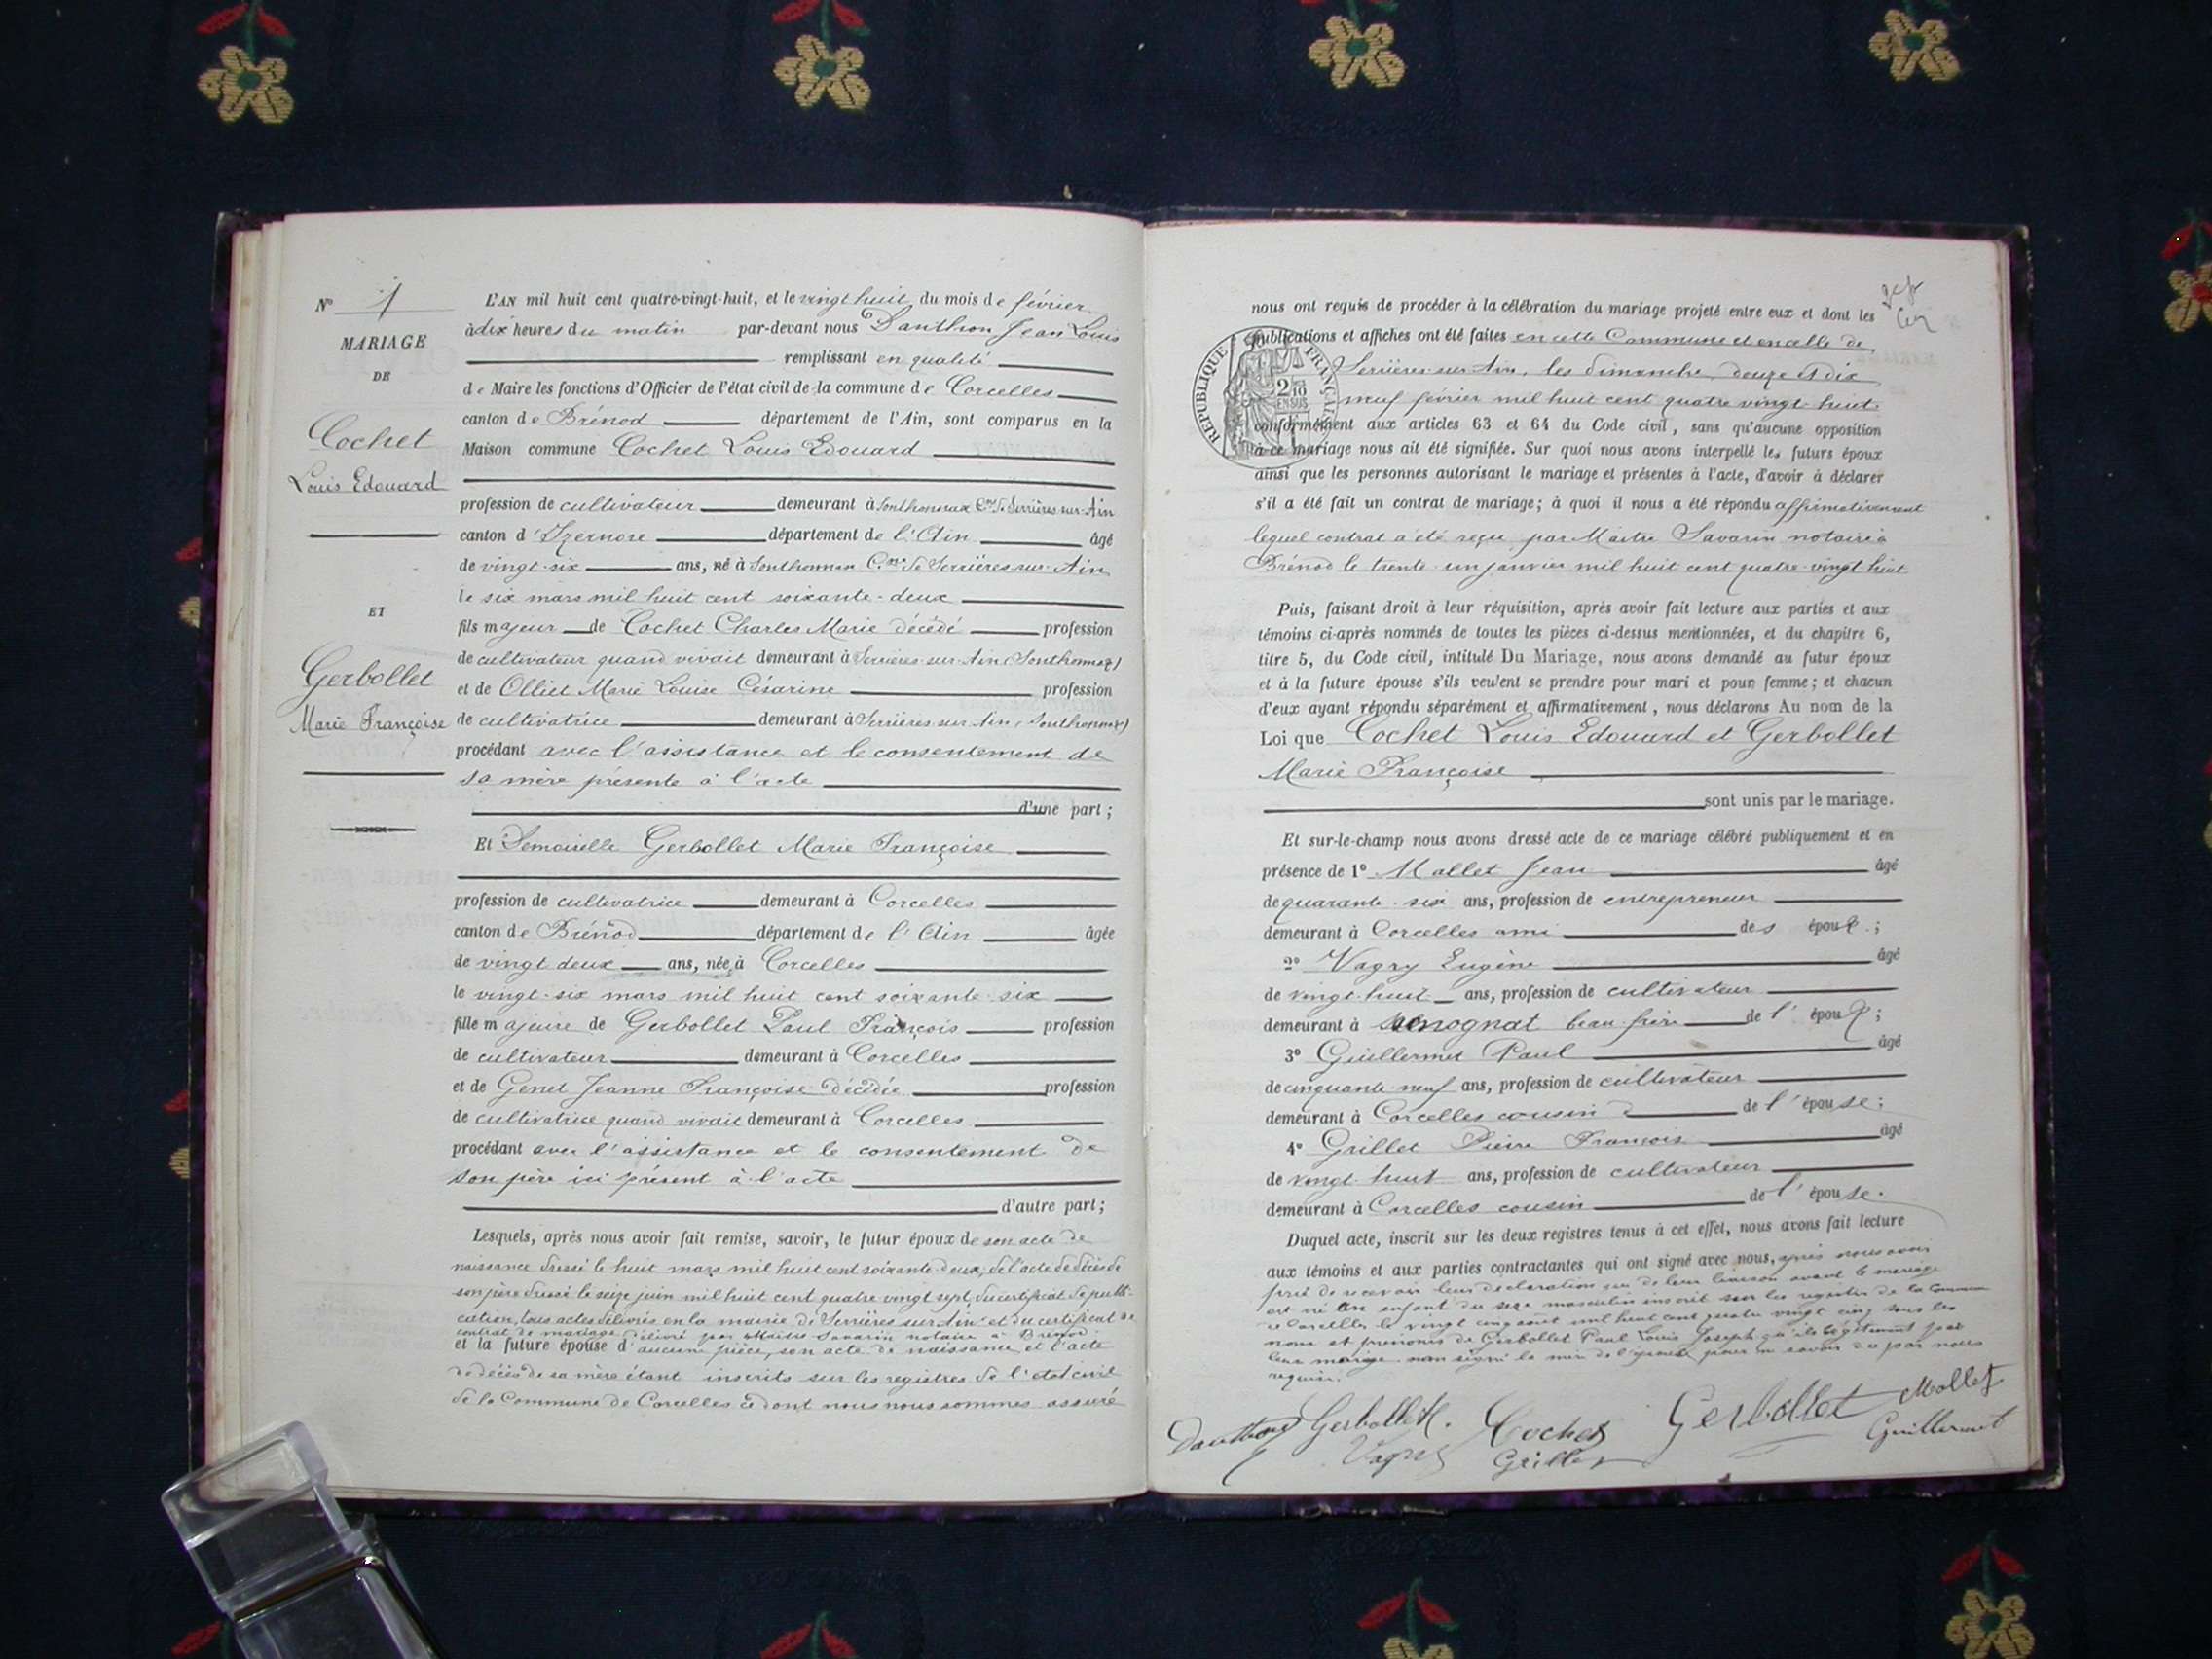 N° 1
MARIAGE
DE
Cochet
Louis Edouard
ET
Gerbollet
Marie Françoise
L'AN mil huit cent quatre-vingt-huit, et le vingt huit du mois de février
à dix heures du matin par-devant nous Danthon Jean Louis
remplissant en qualité
de Maire les fonctions d'Officier de l'état civil de la commune de Corcelles
canton de Brénod département de l'Ain, sont comparus en la
Maison commune Cochet Louis Edouard
profession de cultivateur demeurant à Sonthonnax Cne de Serrières-sur-Ain
canton d'Izernore département de l'Ain âgé
de vingt-six ans, né à Sonthonnax Cne de Serrières-sur-Ain
le six mars mil huit cent soixante-deux
fils majeur de Cochet Charles Marie décédé profession
de cultivateur quand vivait demeurant à Serrières-sur-Ain (Sonthonnax)
et de Olliet Marie Louise Césarine profession
de cultivatrice demeurant à Serrières-sur-Ain (Sonthonnax)
procédant avec l'assistance et le consentement de
sa mère présente à l'acte
d'une part;
Et Demoiselle Gerbollet Marie Françoise
profession de cultivatrice demeurant à Corcelles
canton de Brénod département de l'Ain âgée
de vingt deux ans, née à Corcelles
le vingt-six mars mil huit cent soixante-six
fille majeure de Gerbollet Paul François profession
de cultivateur demeurant à Corcelles
et de Genet Jeanne Françoise décédée profession
de cultivatrice quand vivait demeurant à Corcelles
procédant avec l'assistance et le consentement de
son père ici présent à l'acte
d'autre part;
Lesquels, après nous avoir fait remise, savoir, le futur époux de son acte de
naissance dressé le huit mars mil huit cent soixante-deux, de l'acte de décès de
son père dressé le seize juin mil huit cent quatre-vingt sept, du certificat de publi-
cation, tous actes délivrés en la mairie de Serrières sur Ain et du certificat de
contrat de mariage délivré par Maître Savarin notaire à Brénod
et la future épouse d'aucune pièce, son acte de naissance et l'acte
de décès de sa mère étant inscrits sur les registres de l'état civil
de la Commune de Corcelles ce dont nous nous sommes assuré
nous ont requis de procéder à la célébration du mariage projeté entre eux et dont les
publications et affiches ont été faites en cette Commune et en celle de
Serrières-sur-Ain, les dimanche douze et dix
neuf février mil huit cent quatre vingt-huit
REPUBLIQUE FRANÇAI
2 10
EN SUS
conformément aux articles 63 et 64 du Code civil, sans qu'aucune opposition
à ce mariage nous ait été signifiée. Sur quoi nous avons interpellé les futurs époux
ainsi que les personnes autorisant le mariage et présentes à l'acte, d'avoir à déclarer
s'il a été fait un contrat de mariage; à quoi il nous a été répondu affirmativement
lequel contrat a été reçu par Maître Savarin notaire à
Brénod le trente-un janvier mil huit cent quatre-vingt huit
Puis, faisant droit à leur réquisition, après avoir fait lecture aux parties et aux
témoins ci-après nommés de toutes les pièces ci-dessus mentionnées, et du chapitre 6,
titre 5, du Code civil, intitulé Du Mariage, nous avons demandé au futur époux
et à la future épouse s'ils veulent se prendre pour mari et pour femme; et chacun
d'eux ayant répondu séparément et affirmativement, nous déclarons Au nom de la
Loi que Cochet Louis Edouard et Gerbollet
Marie Françoise
sont unis par le mariage.
Et sur-le-champ nous avons dressé acte de ce mariage célébré publiquement et en
présence de 1° Mallet Jean âgé
de quarante-six ans, profession de entrepreneur
demeurant à Corcelles ami des époux;
2° Vagry Eugène âgé
de vingt-huit ans, profession de cultivateur
demeurant à Senognat beau-frère de l'époux;
3° Guillermet Paul âgé
de cinquante-neuf ans, profession de cultivateur
demeurant à Corcelles cousin de l'épouse;
4° Grillet Pierre François âgé
de vingt-huit ans, profession de cultivateur
demeurant à Corcelles cousin de l'épouse.
Duquel acte, inscrit sur les deux registres tenus à cet effet, nous avons fait lecture
aux témoins et aux parties contractantes qui ont signé avec nous, après nous avoir
prié de recevoir leur déclaration que de leur liaison avant le mariage
est né un enfant du sexe masculin inscrit sur les registres de la Commune
de Corcelles le vingt cinq août mil huit cent quatre vingt cinq sous les
nom et prénoms de Gerbollet Paul Louis Joseph qu'ils légitiment par
leur mariage. non signé la mère de l'époux pour ne savoir de par nous
requise.
Danthon Gerbollet Cochet Gerbollet Mollet
Vagry Grillet Guillermet